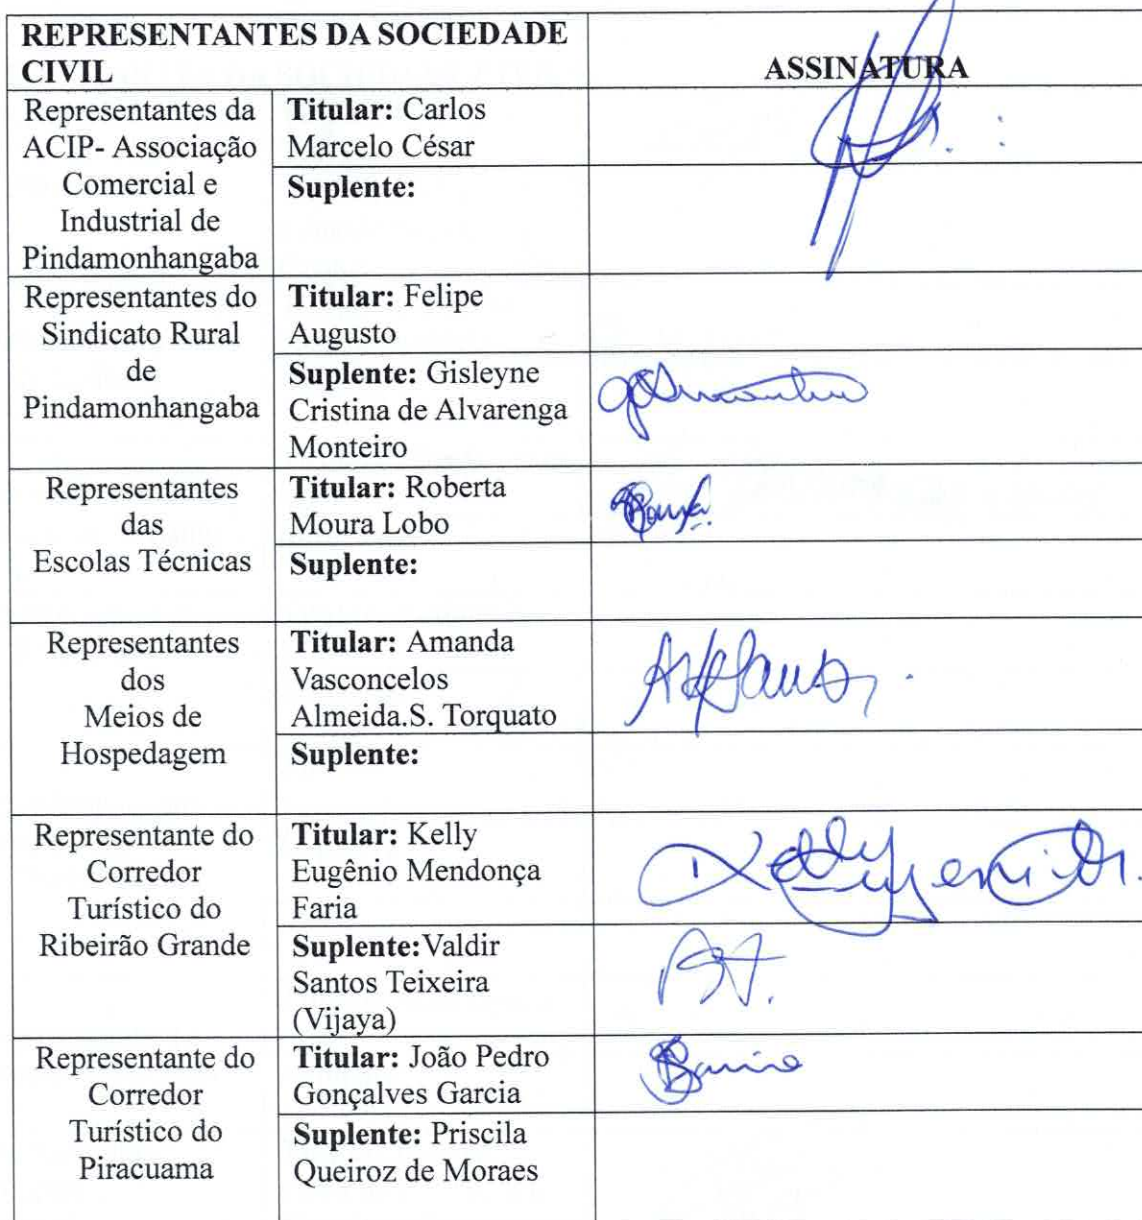 REPRESENTANTES DA SOCIEDADE
CIVIL
ASSINATURA
Representantes da
ACIP- Associação
Comercial e
Industrial de
Pindamonhangaba
Titular: Carlos
Marcelo César
Suplente:
Representantes do
Sindicato Rural
de
Pindamonhangaba
Titular: Felipe
Augusto
Suplente: Gisleyne
Cristina de Alvarenga
Monteiro
Representantes
das
Escolas Técnicas
Titular: Roberta
Moura Lobo
Suplente:
Representantes
dos
Meios de
Hospedagem
Titular: Amanda
Vasconcelos
Almeida.S. Torquato
Suplente:
Representante do
Corredor
Turístico do
Ribeirão Grande
Titular: Kelly
Eugênio Mendonça
Faria
Suplente:Valdir
Santos Teixeira
(Vijaya)
Representante do
Corredor
Turístico do
Piracuama
Titular: João Pedro
Gonçalves Garcia
Suplente: Priscila
Queiroz de Moraes